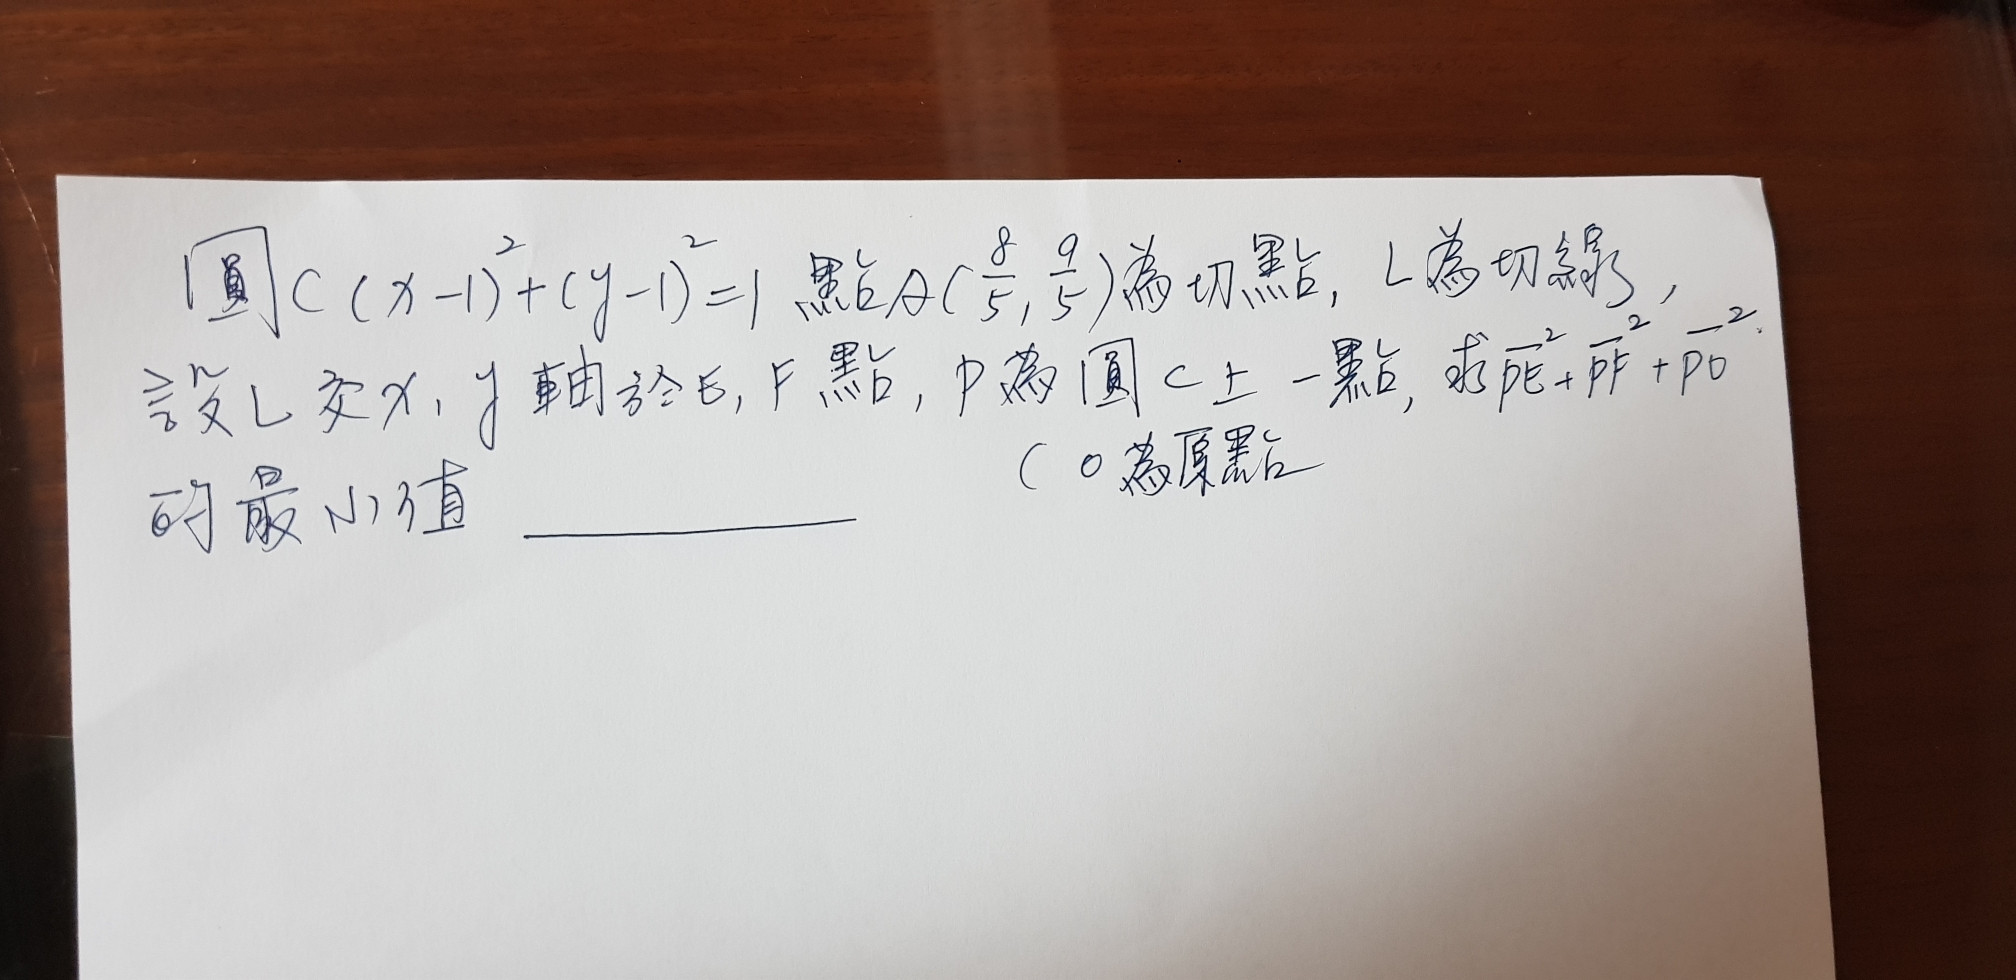 圓C (x-1)²+(y-1)²=1 點A(8/5, 9/5)為切點, L為切線,
設L交x, y軸於E, F點, P為圓C上一點, 求PE²+PF²+PO²
(O為原點
的最小值